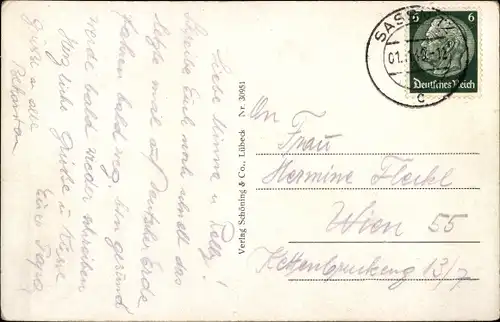 Liebe Minna u
Schreibe Euch noch schnell das
letzte mal auf Deutscher Erde
fahren bald weg. bin gesund
werde bald wieder schreiben
Herzliche Grüße u Küsse
Euer Papa
Grüße an alle
Verlag Schöning & Co., Lübeck
Nr. 30951
SASS
01.
c
6
6
Deutsches Reich
An
Frau
Hermine Fleckl
Wien 55
13/7